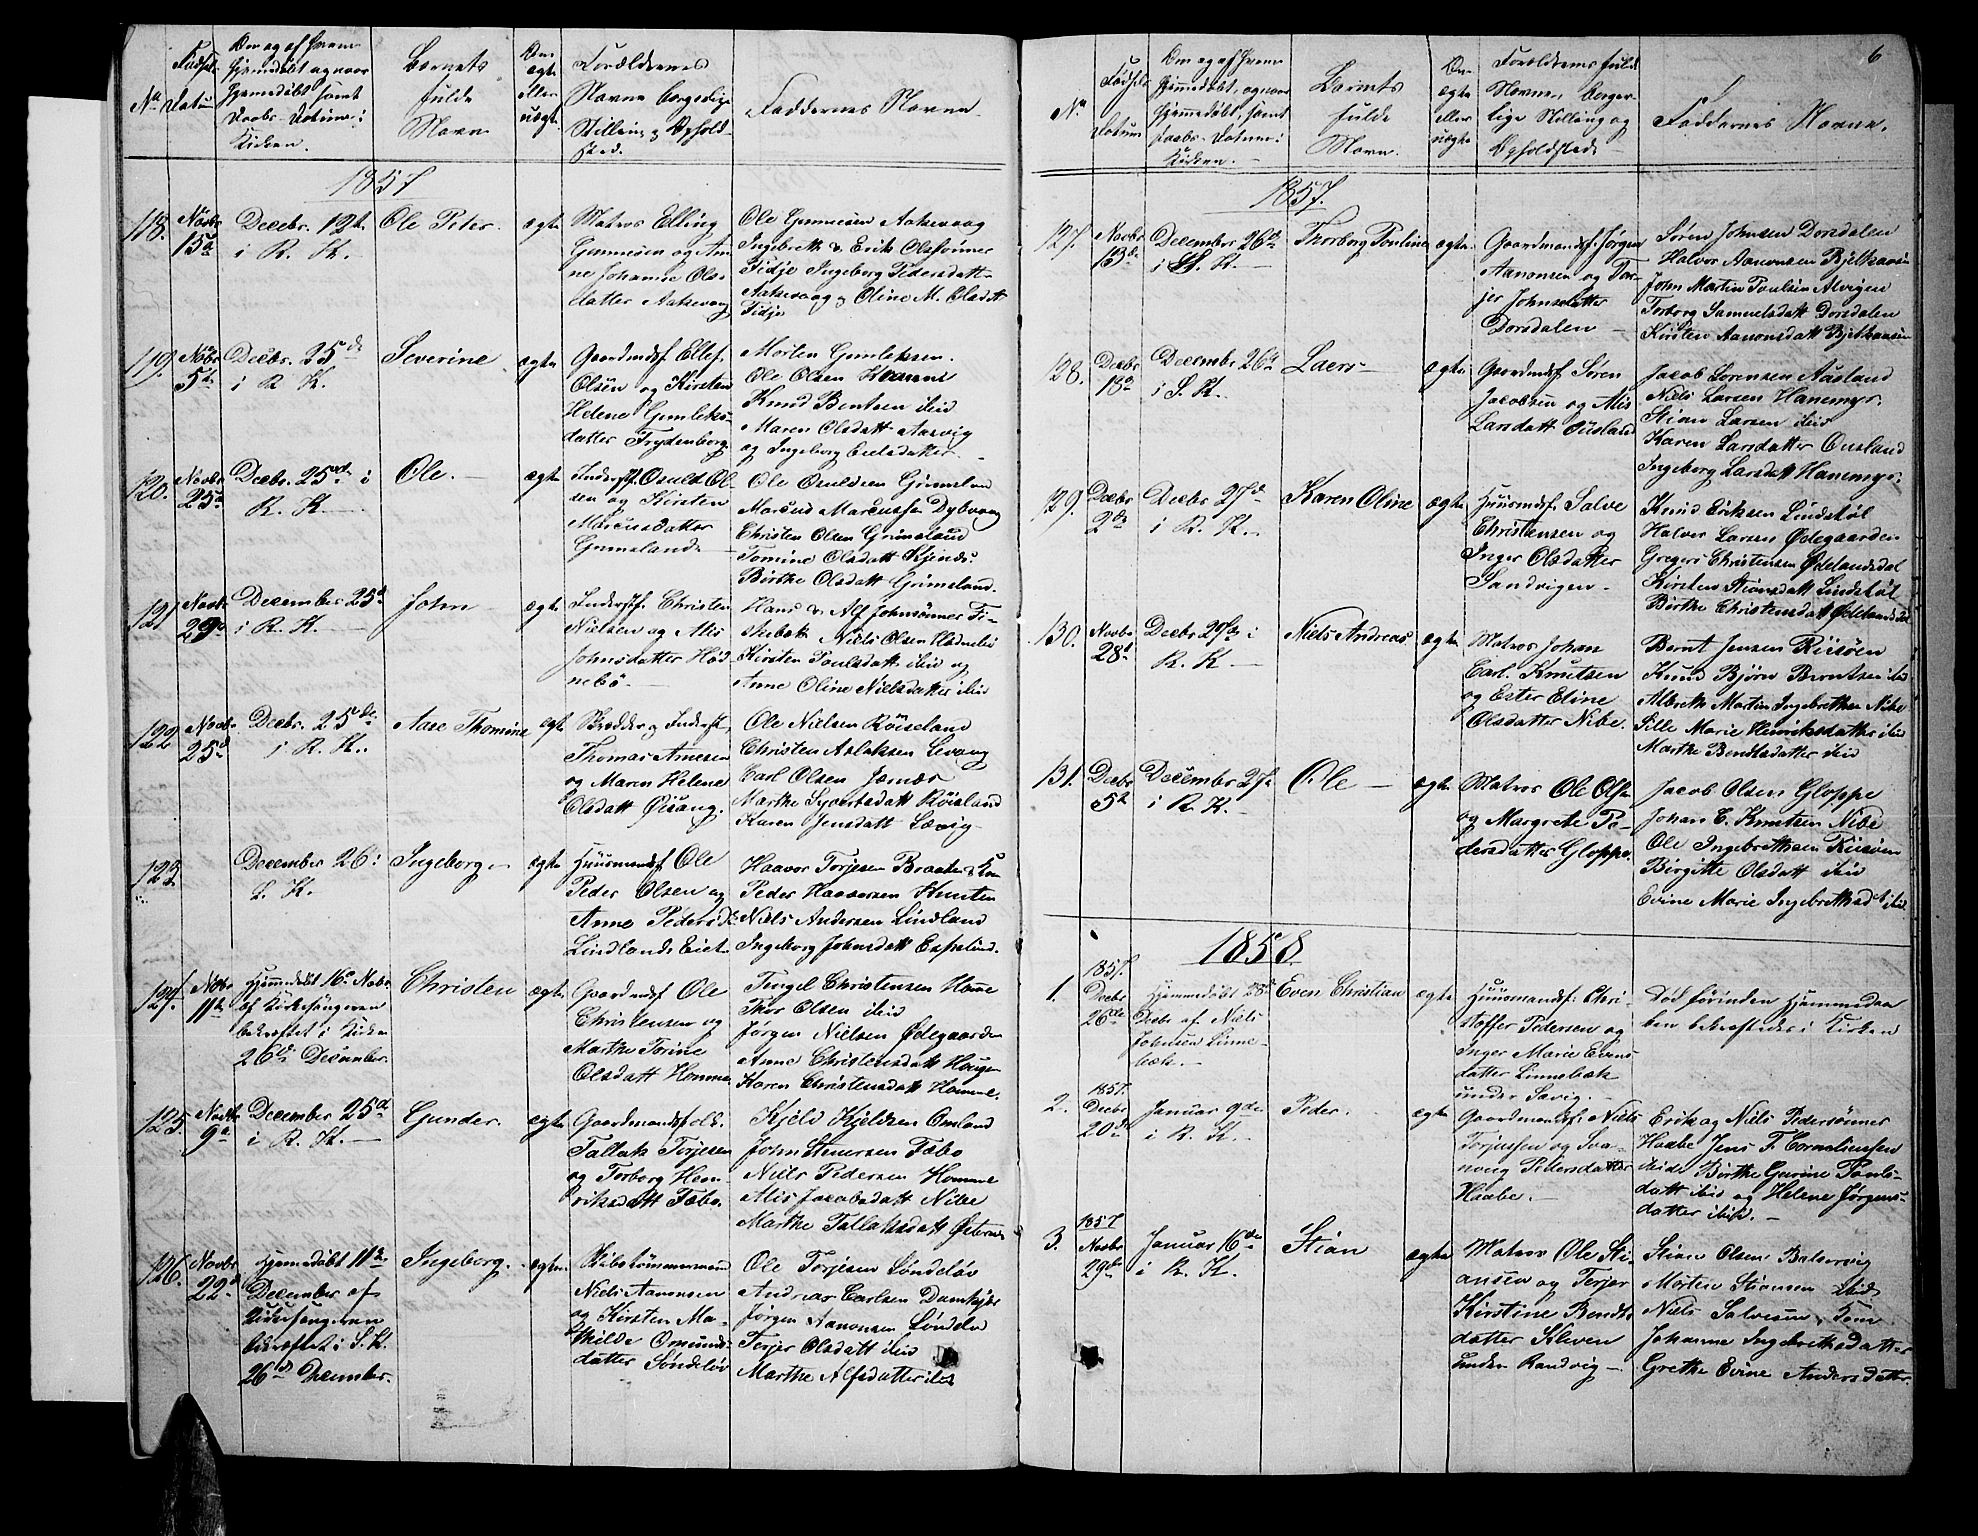 No
Fødsels
Datum
Om og af hvem
hjemmedøbt og naar
hjemmedøbt samt
Daabs-Datum i
Kirken.
Barnets
fulde
Navn
Om
ægte
eller
uægte
Forældrenes
Navne borgerlige
Stilling og Ophold-
sted.
Faddernes Navne
1857
118.
Novbr
15de
Decbr. 12te
i R. K.
Ole Peter.
ægte
Matros Elling
Gunnesen og An
ne Johanne Ols
datter Aakevaag
Ole Gunnesen Aakevaag
Ingebreth & Erik Olssønner
Fidje Ingeborg Pedersdatt
Aakevaag & Oline M. Olsdatt
Fidje
119.
Novbr
5te
Decbr. 25de
i R K.
Severine
ægte
Gaardmdsf. Ellef
Olsen og Kirsten
Helene Gunleks-
datter Frydenborg
Morten Gunleksen.
Ole Olsen
Knud Bentsen ibid
Maren Olsdatt Aasvig
og Ingeborg
120.
Novbr
25de
Decbr. 25de i
R. K.
Ole.
ægte
Inderstf. Osuld Ol
sen og Kirsten
Marcusdatter
Grimsland
Ole Osuldsen Grimsland
Marcus Marcussen Dybvaag
Christen Olsen Grimsland
Tomine Olsdatt
Børthe Olsdatt Grimsland.
121
Novbr
29de
December 25de
i R. K.
John
ægte
Inderstf. Christen
Nielsen og Alis
Johnsdatter Hød
nebø
Hans & Alf Johnsønner Fi-
skebæk Niels Olsen
Kirsten Poulsdatt ibid og
Anne Oline Nielsdatter ibid
122
Novbr
25de
Decbr. 25de
i R. K.
Aase Thomine
ægte
Skredder og Inderst
Thomas Arnesen
og Maren Helene
Olsdatt Øisang.
Ole Nielsen Røiseland
Christen Aslaksen Levang
Carl Olsen Jernæs
Marthe Syversdatt Røisland
Karen Jensdatt Lævig
123.
December 26 i
S. K.
Ingeborg.
ægte
Huusmandsf Ole
Peder Olsen og
Anne Pedersd.
Lindlands Eiet
Haavor Torjesen Braaten
Peder Haavorsen
Niels Andersen Lindland
Ingeborg Johnsdatt Espelind.
124.
Novbr
11te
Hjemmedøbt 16de Novbr
af Kirkesangeren
bekræftet i Kirken
26de December.
Christen
ægte
Gaardmdsf Ole
Christensen og
Marthe Torine
Olsdatt Homme
Tengel Christensen Homme
Thor Olsen ibid
Jørgen Nielsen Ødegaarden
Anne Christensdatt Haugen
Karen Christensdatt Homme.
125.
Novbr
9de
December 25de
i R. K.
Gunder
ægte
Gaardmandsfolk
Tallak Torjesen
og Torborg Hen-
riksdatt Føbo.
Kjeld Kjeldsen Omland
John Stenersen Føbo
Niels Pedersen Homme
Alis Jacobsdatt Nibe
Marthe Tallaksdatt
126.
Novbr
22de
Hjemmedøbt 11te
December af
Kirkesangeren
bekræftet i S. K.
26de December.
Ingeborg.
ægte
Skibstømmermand
Niels Aanonsen
og Kirsten Ma-
thilde Omunds
datter Søndeløv
Ole Torjesen Søndeløv
Andreas Carlsen Damkjær
Jørgen Aanonsen Søndeløv
Terjer Olsdatt ibid
Marthe Alfsdatter ibid
6
No
Fødsels
Datum
Om og af hvem
hjemmedøbt, og naar
hjemmedøbt, samt
Daabs-Datum i
Kirken.
Barnets
fulde
Navn.
Om
ægte
eller
uægte
Forældrenes fulde
Navne, borger-
lige Stilling og
Opholdsted
Faddernes Navne.
1857.
127.
Novbr
13de
December 26de
i S. K.
Thorborg Pouline
ægte
Gaardmandsf. Jørgen
Aanonsen og Ter-
jer Johnsdatter
Dorsdalen
Søren Johnsen Dorsdalen
Halvor Aanonsen
John Martin Poulsen Alvigen
Torborg Samuelsdatt Dorsdalen
Kirsten Aanonsdatt
128.
Decbr
18de
December 26de
i S. K.
Laers
ægte
Gaardmdsf Søren
Jacobsen og Alis
Larsdatt Ousland
Jacob Sørensen Ausland
Niels Larsen Hanemyr.
Stian Larsen ibid
Karen Larsdatter Ousland
Ingeborg Larsdatt Hanemyr.
129.
Decbr
2de
Decbr 27de
i R. K.
Karen Oline
ægte
Huusmdsf. Salve
Christensen og
Inger Olsdatter
Sandvigen
Knud Eriksen Lindstøl
Halvor Larsen Ødegaarden
Gregers Christensen Ødelandsdal
Kirsten Stiansdatt Lindstøl
Birthe Christensdatt Ødelandsdal
130.
Novbr
28de
Decbr 27de i
R. K.
Niels Andreas
ægte
Matros Johan
Carl. Knutsen
og Ester Eline
Olsdatter Nibe.
Bernt Jensen Risøen
Knud Bjørn Berntsen ibid
Albreth Martin Ingebrethsen Nibe
Sille Marie Henriksdatter ibid
Marthe Bendtsdatter ibid
131.
Decbr
5te
December 27de
i R. K.
Ole
ægte
Matros Ole Olsen
og Margrete Pe-
dersdatter Gloppe.
Jacob Olsen Gloppe
Johan C. Knutsen Nibe
Ole Ingebrethsen Risøen
Birgitte Olsdatt ibid
Evine Marie Ingebrethsdatt ibid
1858
1.
1857.
Decbr
26de
Hjemmedøbt 28de
Decbr af Niels
Johnsen Linne-
bæk.
Even Christian
ægte
Huusmandsf: Chri-
stoffer Pedersen og
Inger Marie Evens-
datter Linnebæk
under Savig.
Død førinden Hjemmedaa
ben bekræftedes i Kirken
2.
1857.
Decbr
20de
Januar 9de
i R. K.
Peder.
ægte
Gaardmandsf: Niels
Torjussen og Sva-
novig Pedersdatter
Haabe.
Erik og Niels Pedersønner
Haabe Jens F. Corneliussen
ibid Børthe Gurine Pouls-
datt ibid og Helene Jørgens-
datter ibid.
3.
1857
Novbr
29de
Januar 16de
i R. K.
Stian
ægte
Matros Ole Sti-
ansen og Terjer
Kirstine Bendts
datter
under Randvig
Stian Olsen
Morten Stiansen ibid
Niels Salvesen
Johanne Ingebrethsdatter
Grethe Evine Andersdatter.